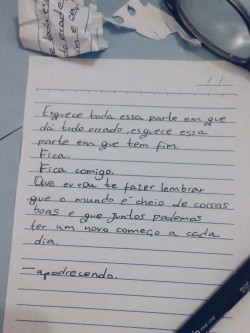 Esquece toda essa parte em que
dá tudo errado, esquece essa
parte em que tem fim.
Fica.
Fica comigo.
Que eu vou te fazer lembrar
que o mundo é cheio de coisas
boas e que juntos podemos
ter um novo começo a cada
dia.
— apodrecendo.